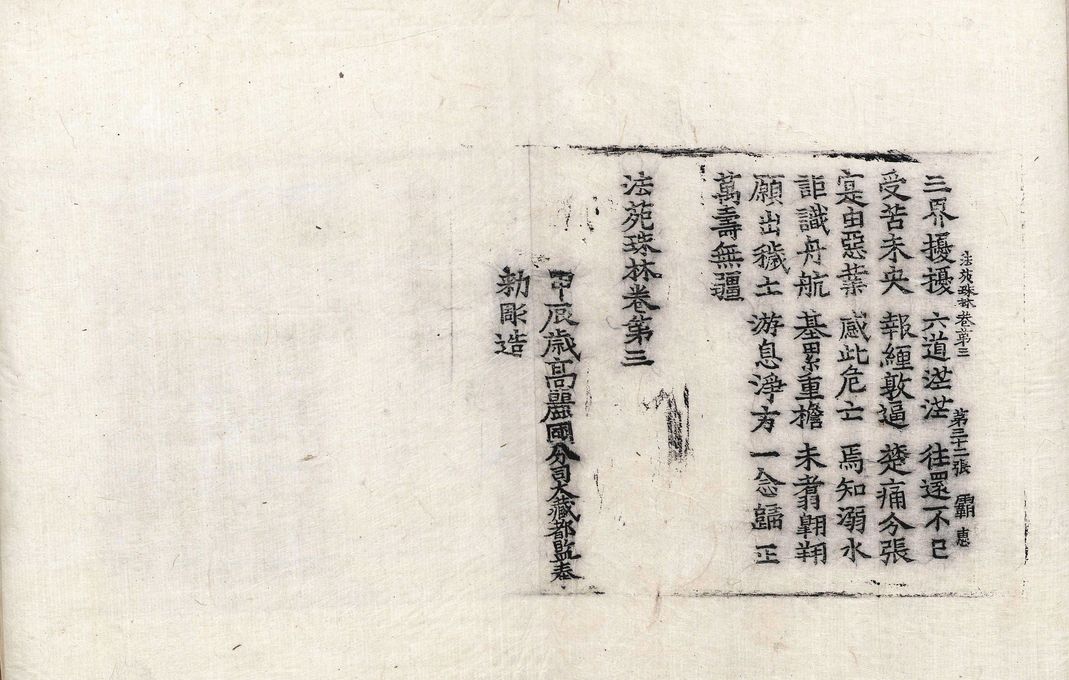 法苑珠林卷第三 第三十二張 覇 惠
三界擾擾 六道茫茫 往還不已
受苦未央 報纏敦逼 楚痛分張
寔由惡業 感此危亡 焉知溺水
詎識舟航 基累重擔 未羨翱翔
願出穢土 游息淨方 一念歸正
萬壽無疆
法苑珠林卷第三
甲辰歲高麗國分司大藏都監奉
勅彫造